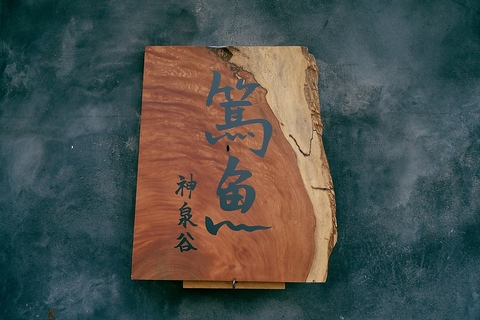 篤魚
神泉谷